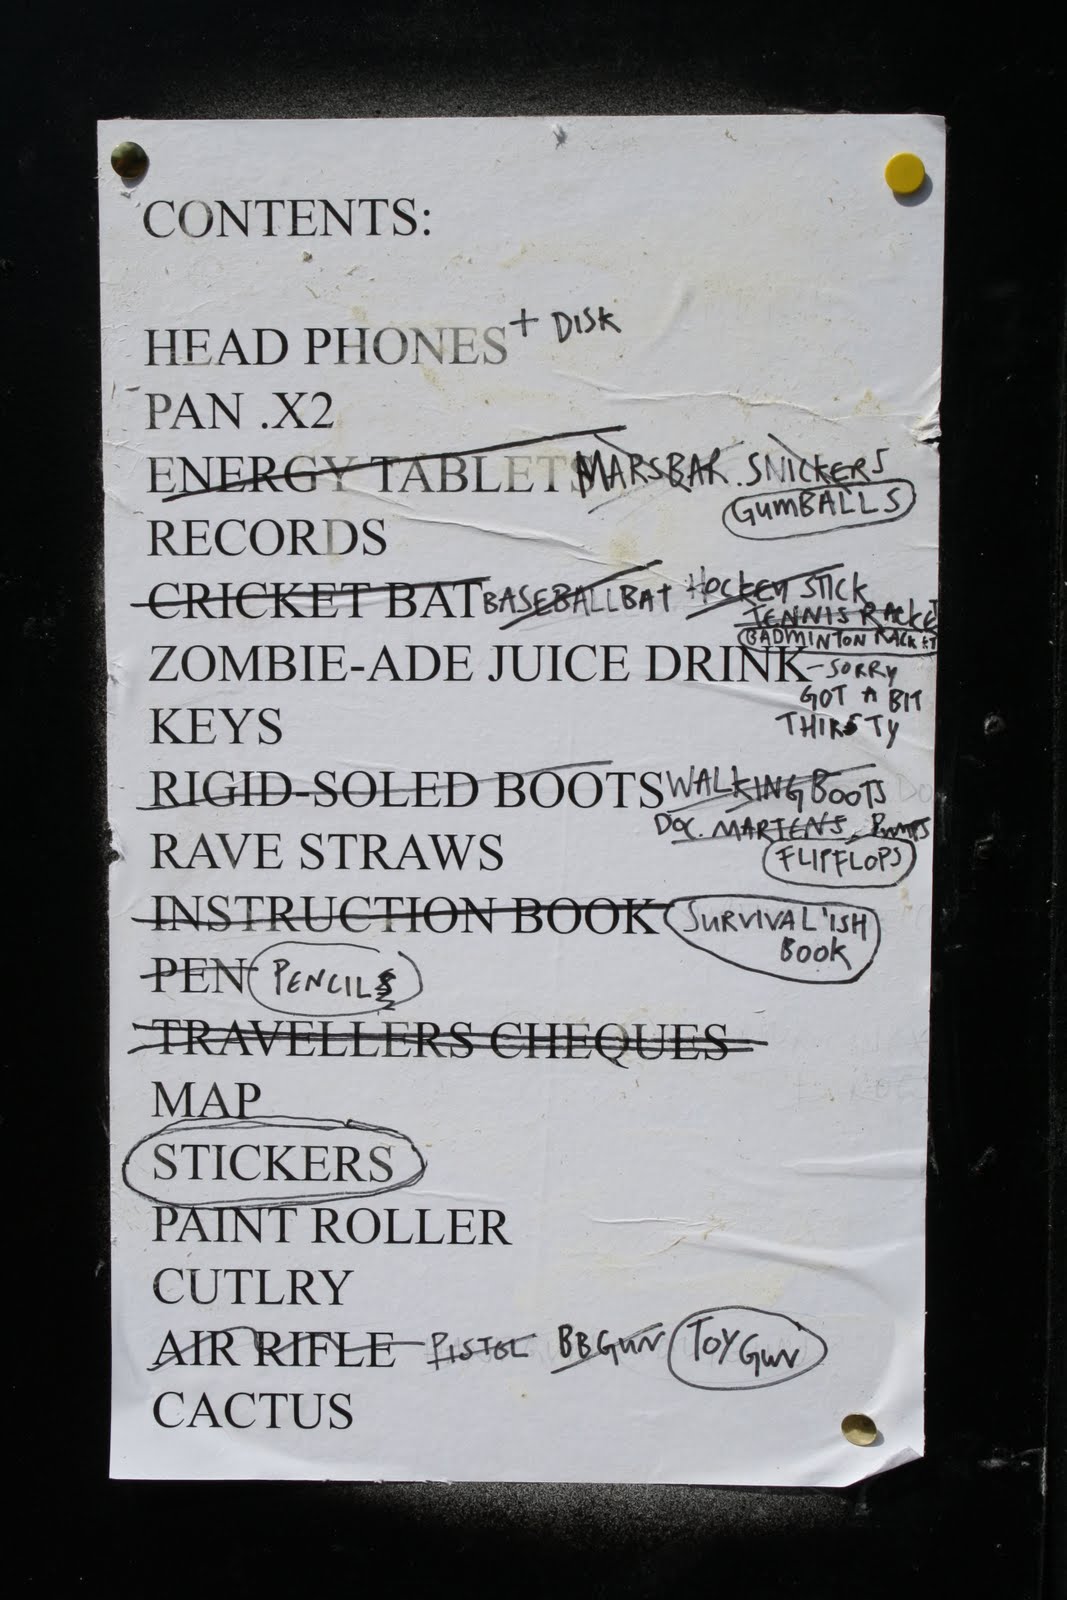 CONTENTS:
HEAD PHONES + DISK
PAN .X2
ENERGY TABLETS MARSBAR. SNICKERS
GUMBALLS
RECORDS
CRICKET BAT BASEBALLBAT HOCKEY STICK
TENNIS RACKET
BADMINTON RACKET
ZOMBIE-ADE JUICE DRINK - SORRY
GOT A BIT
THIRSTY
KEYS
RIGID-SOLED BOOTS WALKING BOOTS
DOC. MARTENS, PUMPS
RAVE STRAWS FLIPFLOPS
INSTRUCTION BOOK SURVIVAL'ISH
BOOK
PEN PENCIL
TRAVELLERS CHEQUES
MAP
STICKERS
PAINT ROLLER
CUTLRY
AIR RIFLE PISTOL BBGUN TOY GUN
CACTUS